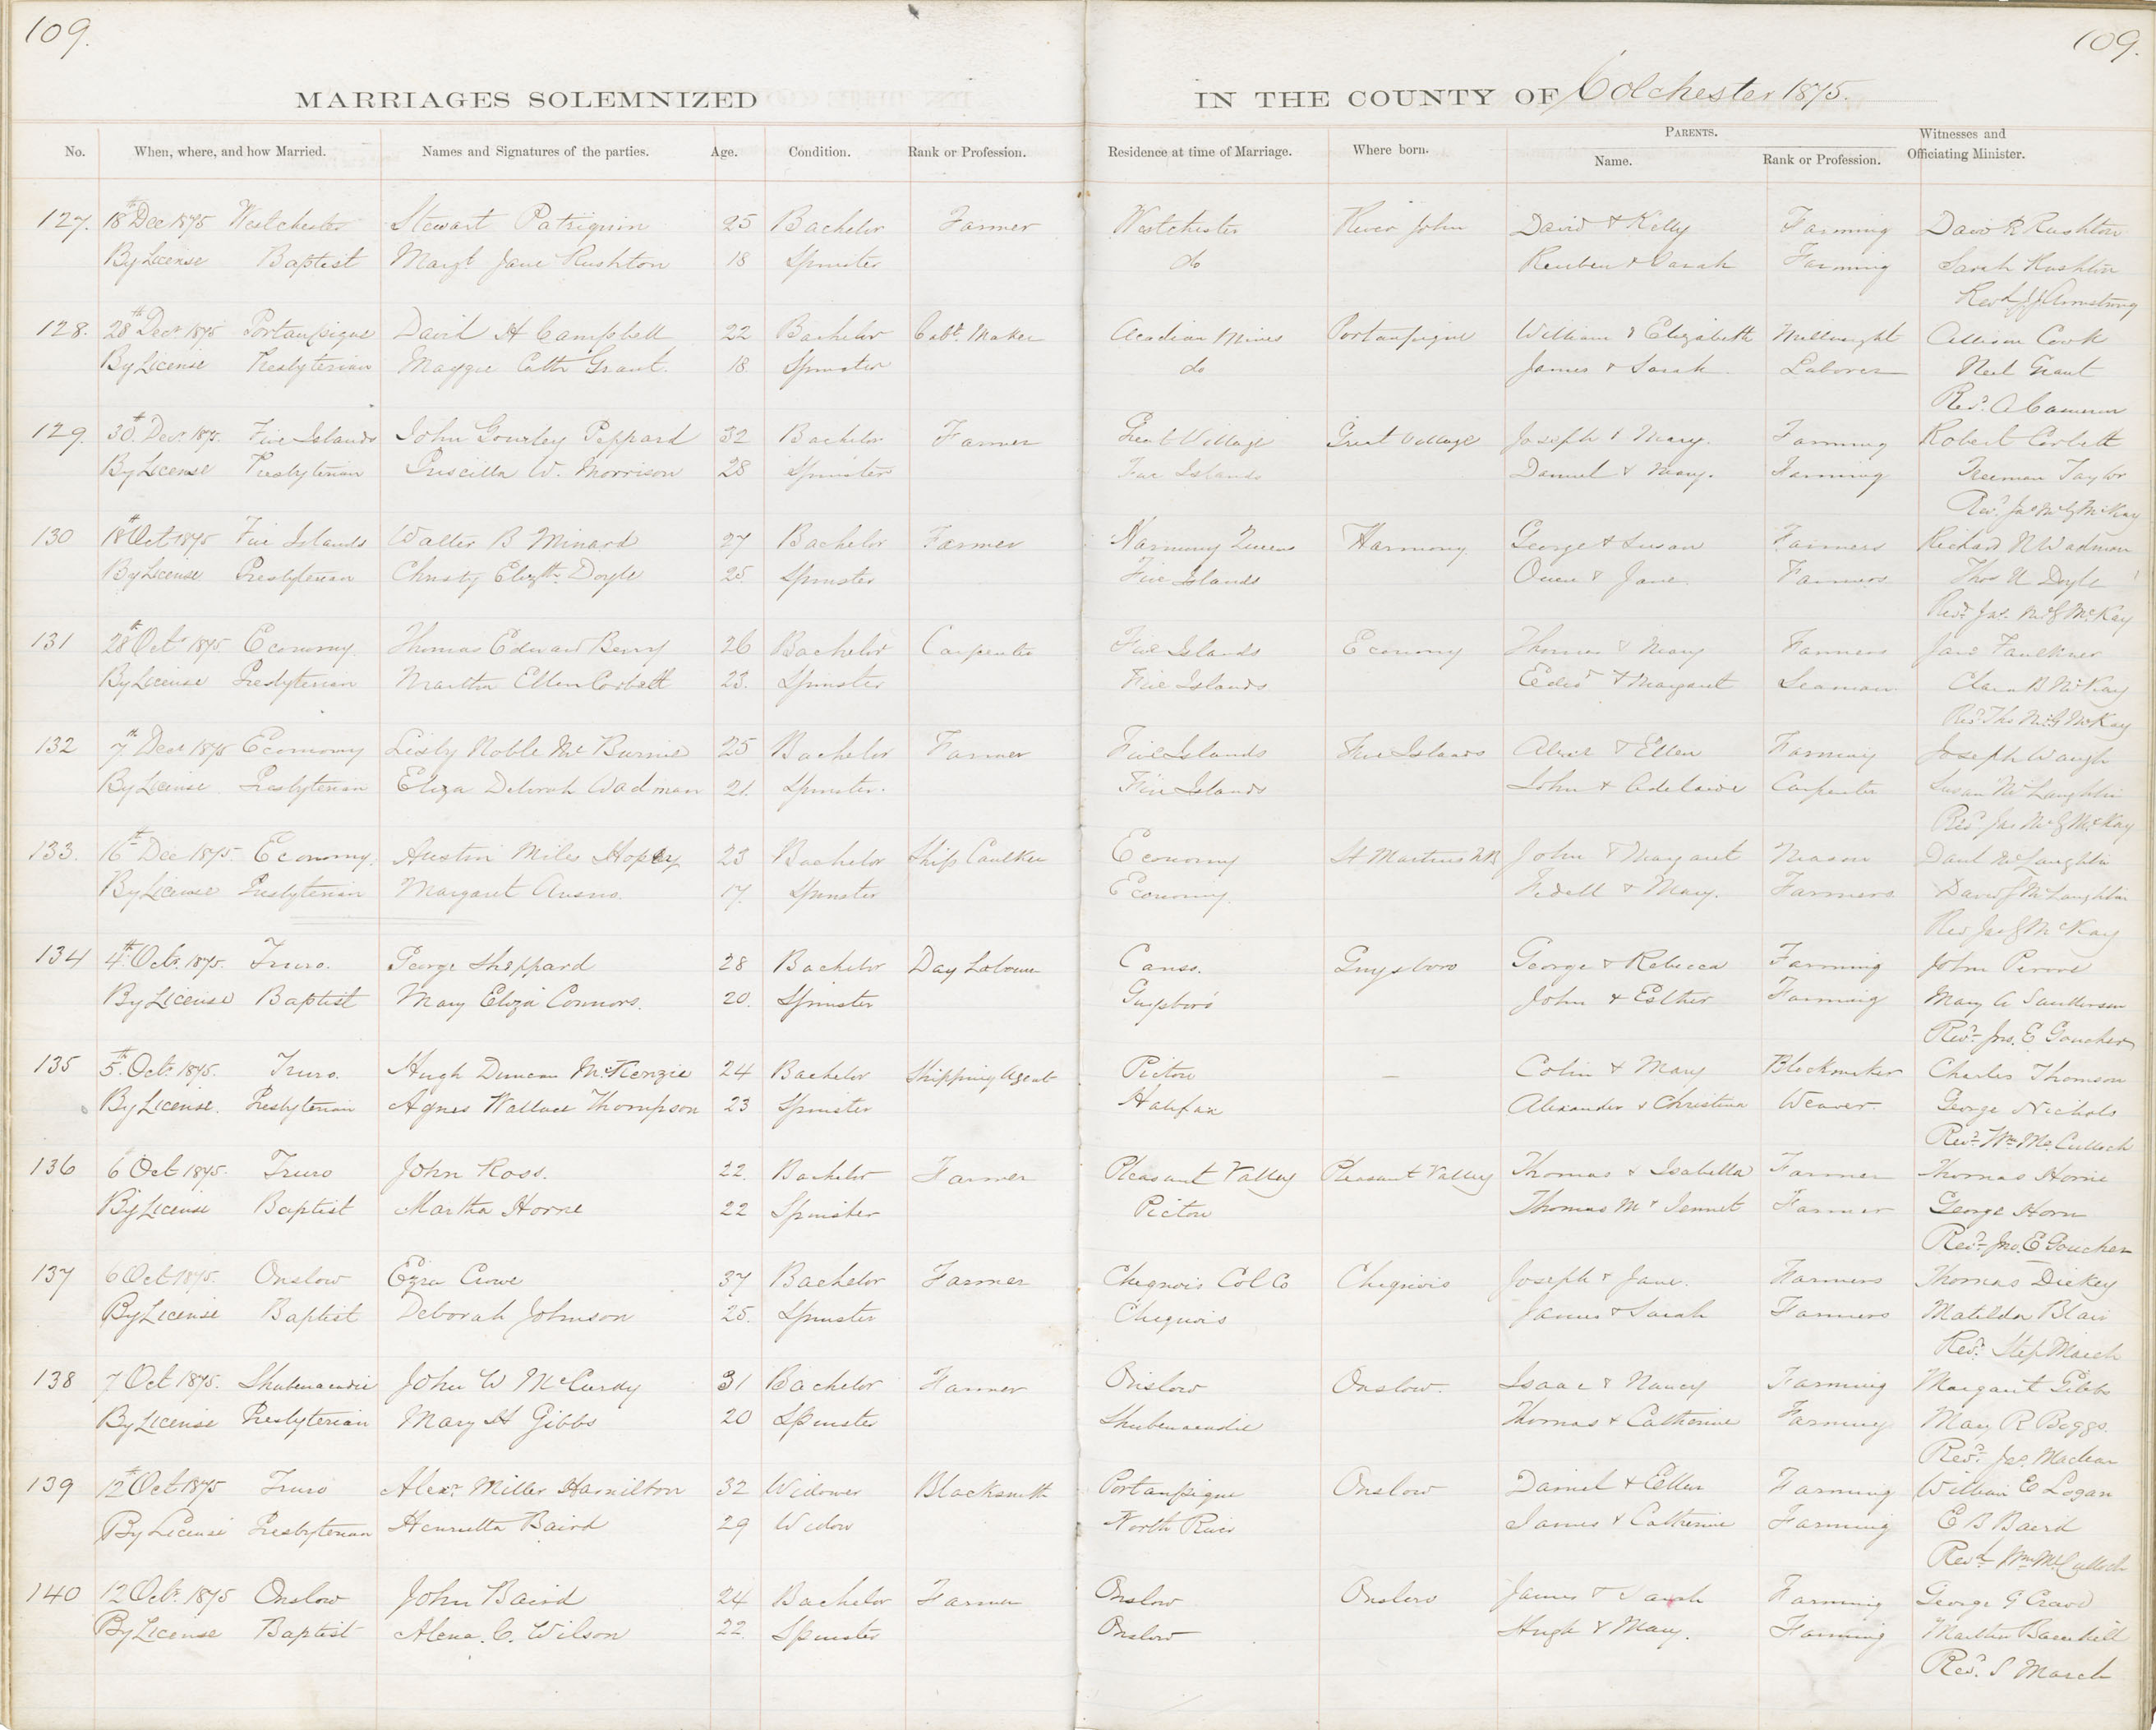 109. 109.
MARRIAGES SOLEMNIZED IN THE COUNTY OF Colchester 1875.
No. When, where, and how Married. Names and Signatures of the parties. Age. Condition. Rank or Profession. Residence at time of Marriage. Where born. PARENTS. Name. Rank or Profession. Witnesses and Officiating Minister.
127. 18th Dec 1875 Westchester Stewart Patriquin 25 Bachelor Farmer Westchester River John David & Kelly Farming David R Rushton
By License Baptist Margt Jane Rushton 18 Spinster do Reuben & Sarah Farming Sarah Rushton
Revd Armstrong
128. 28th Decr 1875 Portaupique David H Campbell 22 Bachelor Cabt. Maker Acadian Mines Portaupique William & Elizabeth Millwright Allison Cook
By License Presbyterian Maggie Cath Grant. 18. Spinster do James & Sarah Laborer Neil Grant
Revd. A Cameron
129. 30th. Decr. 1875. Five Islands John Gourley Peppard 32 Bachelor Farmer Great Village Great Village Joseph & Mary. Farming Robert Corbett
By License Presbyterian Priscilla W. Morrison 28 Spinster Five Islands Daniel & Mary. Farming Freeman Taylor
Revd. Jas McG McKay
130 18th Oct 1875 Five Islands Walter B Minard 27 Bachelor Farmer Harmony Queens Harmony George & Susan Farmers Richard N Wadman
By License Presbyterian Christy Elizth. Doyle 25 Spinster Five Islands Owen & Jane Farmers Thos N Doyle
Revd. Jas. McG McKay
131 28th Oct. 1875. Economy. Thomas Edward Berry 26 Bachelor Carpenter Five Islands Economy Thomas & Mary Farmers Jane Faulkner
By License Presbyterian Martha Ellen Corbett 23. Spinster Five Islands Edwd & Margaret Seaman Clara B McKay
Revd. Thos McG McKay
132 7th Decr 1875 Economy Lisby Noble McBurnie 25 Bachelor Farmer Five Islands Five Islands Alexr & Ellen Farming Joseph Waugh
By License Presbyterian Eliza Deborah Wadman 21. Spinster. Five Islands John & Adelaide Carpenter Susan McLaughlin
Revd Jas McG McKay
133. 16th Dec 1875. Economy. Austin Miles Hopey 23 Bachelor Ship Caulker Economy St Martins NB John & Margaret Mason Danl McLaughlin
By License Presbyterian Margaret 17. Spinster Economy. Fidell & Mary. Farmers David J McLaughlin
Rev Jas G McKay
134 4th. Octr. 1875. Truro. George Sheppard 28 Bachelor Day Laborer Canso. Guysboro George & Rebecca Farming John
By License Baptist Mary Eliza Connors. 20. Spinster Guysboro John & Esther Farming Mary A Saunderson
Revd. Jno. E Goucher
135 5th. Octr. 1875. Truro. Hugh Duncan McKenzie 24 Bachelor Shipping Agent Pictou — Colin & Mary Blockmaker Charles Thomson
By License. Presbyterian Agnes Wallace Thompson 23 Spinster Halifax Alexander & Christina Weaver. George Nichols
Revd. Wm. McCulloch
136 6 Oct 1875. Truro John Ross. 22. Bachelor Farmer Pleasant Valley Pleasant Valley Thomas & Isabella Farmer Thomas Horne
By License Baptist Martha Horne 22 Spinster Pictou Thomas M & Jennet Farmer George Horn
Revd. Jno. E Goucher
137 6 Oct 1875. Onslow Ezra Crowe 37 Bachelor Farmer Chegnois Col Co Chegnois Joseph & Jane. Farmers Thomas Dickey
By License Baptist Deborah Johnson 25. Spinster Chegnois James & Sarah Farmers Matilda Blair
Revd. Step March
138 7 Oct 1875. Shubenacadie John W McCurdy 31 Bachelor Farmer Onslow Onslow. Isaac & Nancy Farming Margaret Gibbs
By License Presbyterian Mary H Gibbs 20 Spinster Shubenacadie Thomas & Catherine Farming Mary R Boggs.
Revd. Jas. Maclean
139 12th Oct 1875 Truro Alexr. Miller Hamilton 32 Widower Blacksmith Portaupique Onslow Daniel & Ellen Farming William E Logan
By License Presbyterian Henrietta Baird 29 Widow North River James & Catherine Farming E B Baird
Revd Wm McCulloch
140 12 Octr. 1875 Onslow John Baird 24 Bachelor Farmer Onslow Onslow James & Sarah Farming George G
By License Baptist Alena. C. Wilson 22. Spinster Onslow Hugh & Mary. Farming Martha Barnhill
Revd. S March